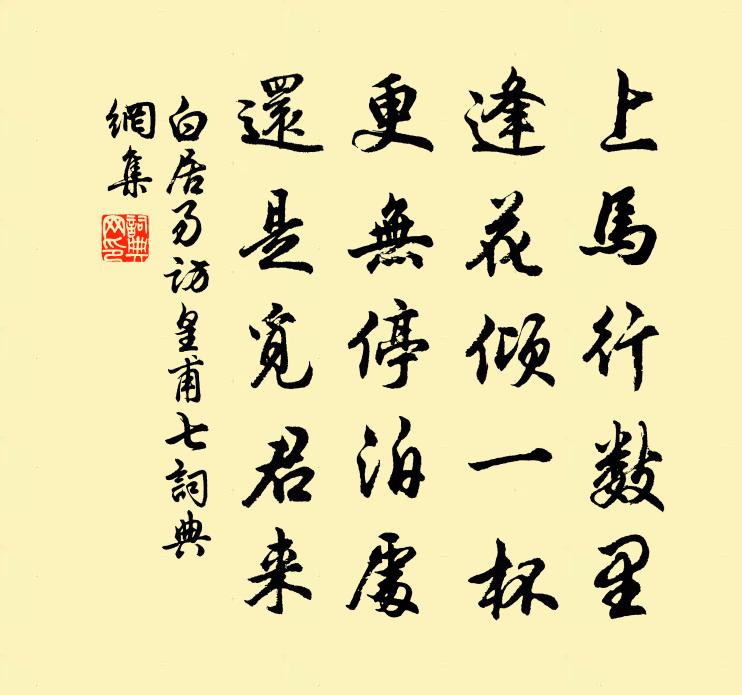 上馬行數里
逢花傾一杯
更無停泊處
還是覓君来
白居易訪皇甫七詞典
網集
詞典
网印